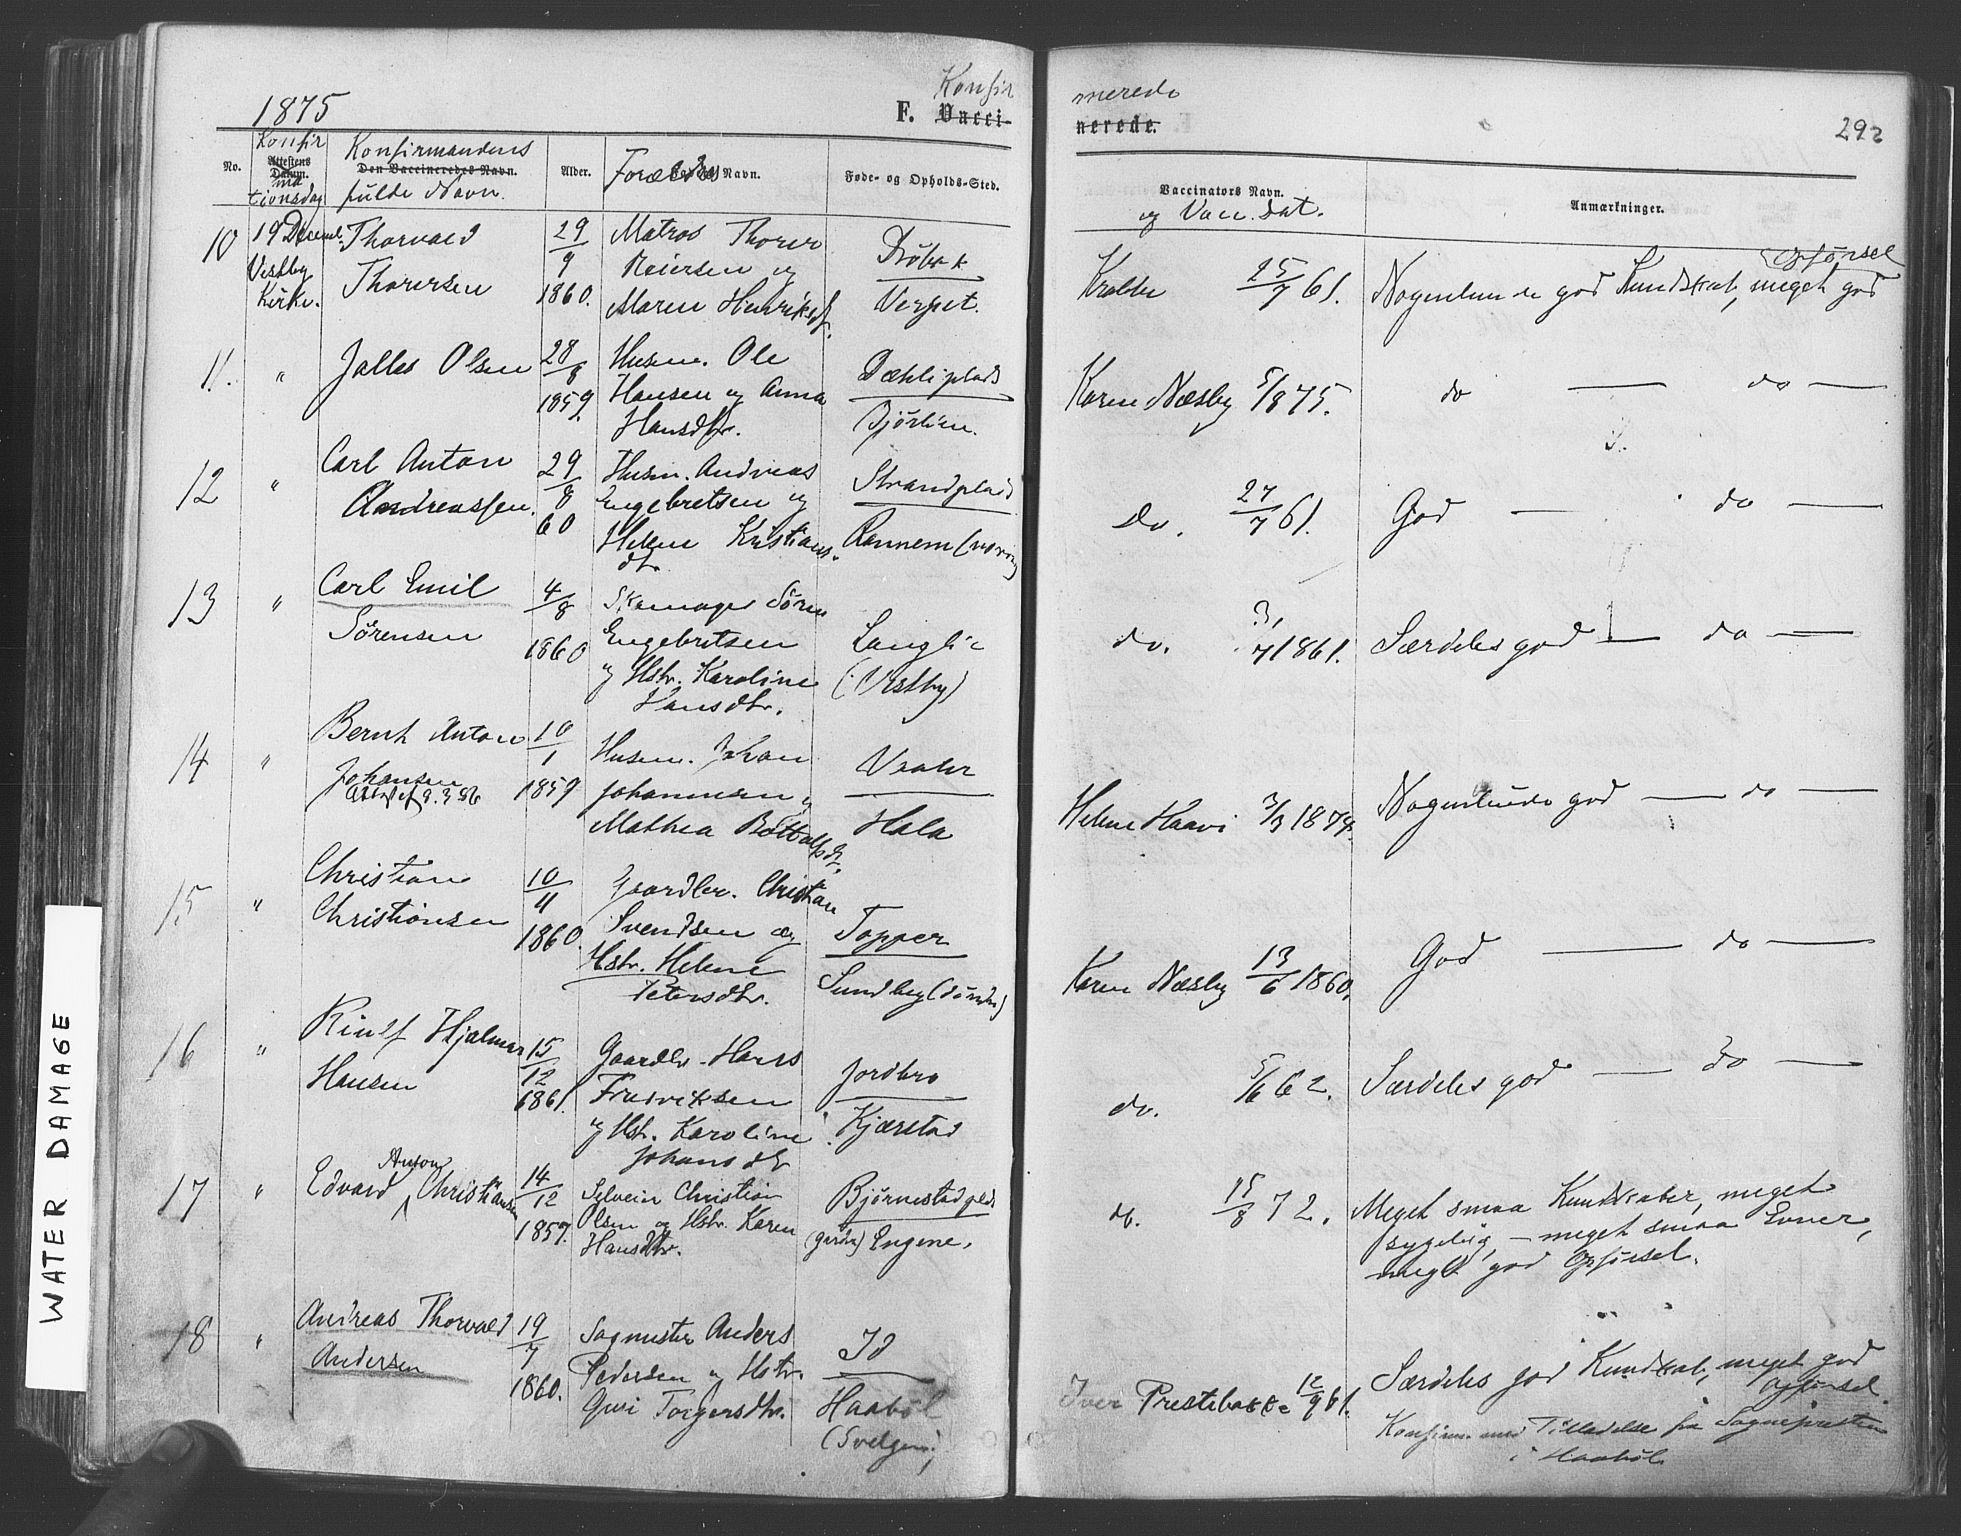 1875
Konfir
F. Vacci-
merede
nerede.
292
No.
Konfir
Attestens
Datum.
ma
tionsdag
Konfirmandens
Den Vaccineredes Navn.
fulde Navn.
Alder.
Forældres Navn.
Føde- og Opholds-Sted.
Vaccinators Navn.
og Vacc. Dat.
Anmærkninger.
10
19 Decemb.
Vestby
Kirke.
Thorvald
Thorersen
29
9
1860.
Matros Thorer
Reiersen og
Maren Henriksd.
Drøbak
Verpet.
Krabbe 25/7 61.
Nogenlunde god Kundskab, meget god
Opførsel
11. "
Olsen
28
8
1859
Husm. Ole
Hansen og Anna
Hansdtr.
Dæhliplads
Bjørlien.
Karen Næsby 5/8 75.
do — do —
12 "
Carl Anton
Andreassen.
29
8
60
Husm. Andreas
Engebretsen og
Helene Kristians
dtr.
Strandplads
Rannem
Do. 27/7 61.
God — do —
13 "
Carl Emil
Sørensen
4
8
1860
Skomager Søren
Engebretsen
og Hstr. Karoline
Hansdtr.
Langli
(Vestby)
do. 3/7 1861.
Særdeles god — do —
14 "
Bernt Anton
Johansen
10
1
1859
Husm. Johan
Johannesen og
Mathea
Vaaler
Hala
Helene Haavi
Nogenlunde god — do —
15 "
Christian
Christiansen
10
11
1860.
Gaardbr. Christian
Svendsen og
Hstr. Helene
Petersdtr.
Topper
Sundby (søndre)
Karen Næsby 13/6 1860.
God — do —
16 "
Hjalmar
Hansen
15
12
1861.
Gaardbr. Hans
Fredriksen
og Hstr. Karoline
Johansdtr
Jordbro
Kjærstad
do. 5/6 62.
Særdeles god — do —
17 "
Anton
Edvard Christiansen
14
12
1857.
Selveier Christian
Olsen og Hstr. Karen
Hansdtr.
Bjørnestadpld
Engene.
do. 15/8 72.
Meget smaa Kundskaber, meget
sygelig, — meget smaa Evner,
meget god Opførsel.
18 "
Andreas Thorvald
Andersen
19
7
1860.
Sagmester Anders
Pedersen og Hstr.
Guri Torgersdtr.
Id
Haabøl
Iver Prestebakke 12/9 61.
Særdeles god Kundskab, meget god
Opførsel
Konfirm. med Tilladelse fra Sognepresten
i Haabøl.
WATER DAMAGE